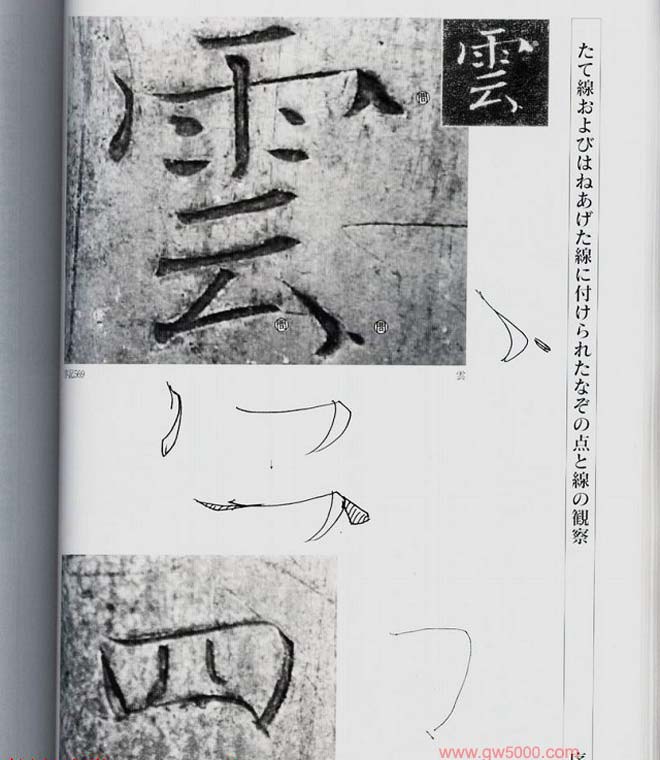 たて線およびはねあげた線に付けられたなぞの点と線の観察
雲
雲
雲
四
序
www.gw5000.com